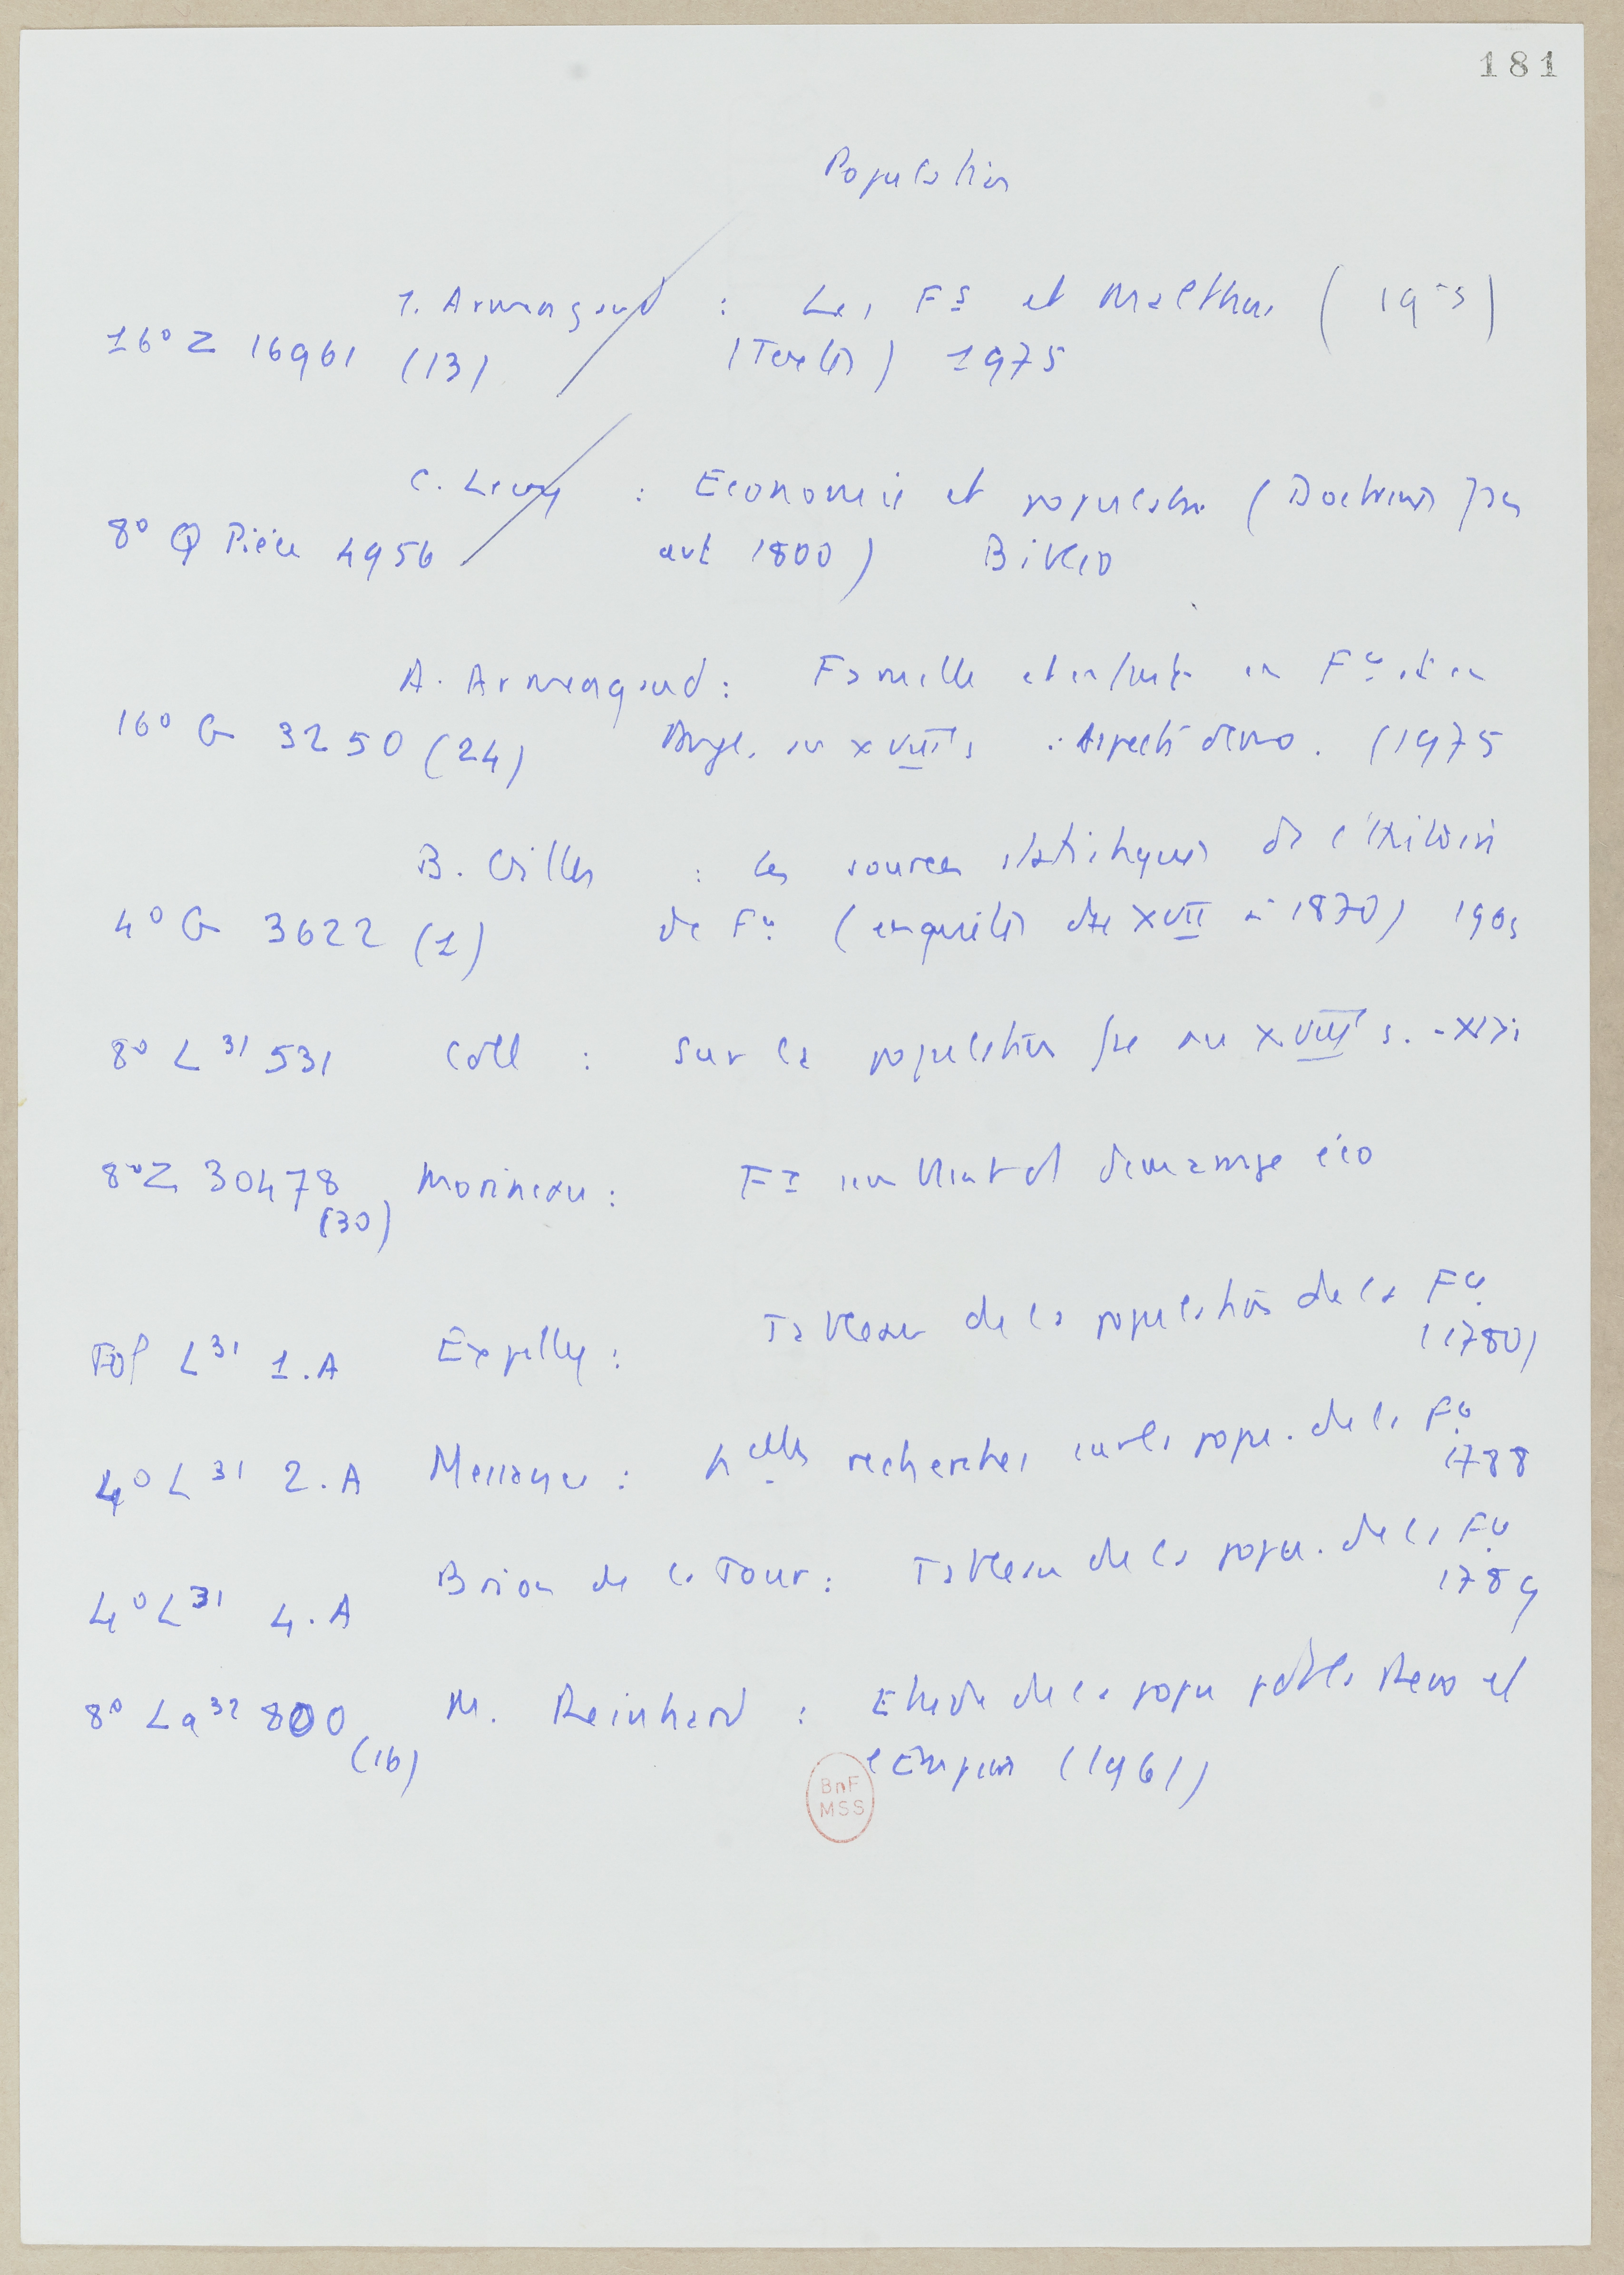 181
Population
1. Armengaud : Les Fs et Malthus (
16° Z 16961 (13) (Textes) 1975
C. Levy : Economie et population (Doctrines fses
8° Q Pièce 4956 avt 1800) Biblio
A. Armengaud : Famille et enfants en Fce et en
16° G 3250 (24) Angl. au XVIIIe s : Aspects démo. (1975
B. Gilles : Les sources statistiques de l'histoire
4° G 3622 (1) de Fce (enquêtes XVII à 1870)
8° L 31 531 Coll : Sur la population fse au XVIIIe s.
8° Z 30478 Morineau : démarrage éco
(30)
Fol L 31 1.A Expilly : Tableau de la population de la Fce
(1780)
4° L 31 2.A Messance : Nelles recherches sur la popu. de la Fce
1788
4° L 31 4.A Brion de la Tour : Tableau de la popu. de la Fce
1789
8° La 32 800 M. Reinhard : Etude de la popu pdt la Revo et
(16) l'Empire (1961)
BnF
MSS